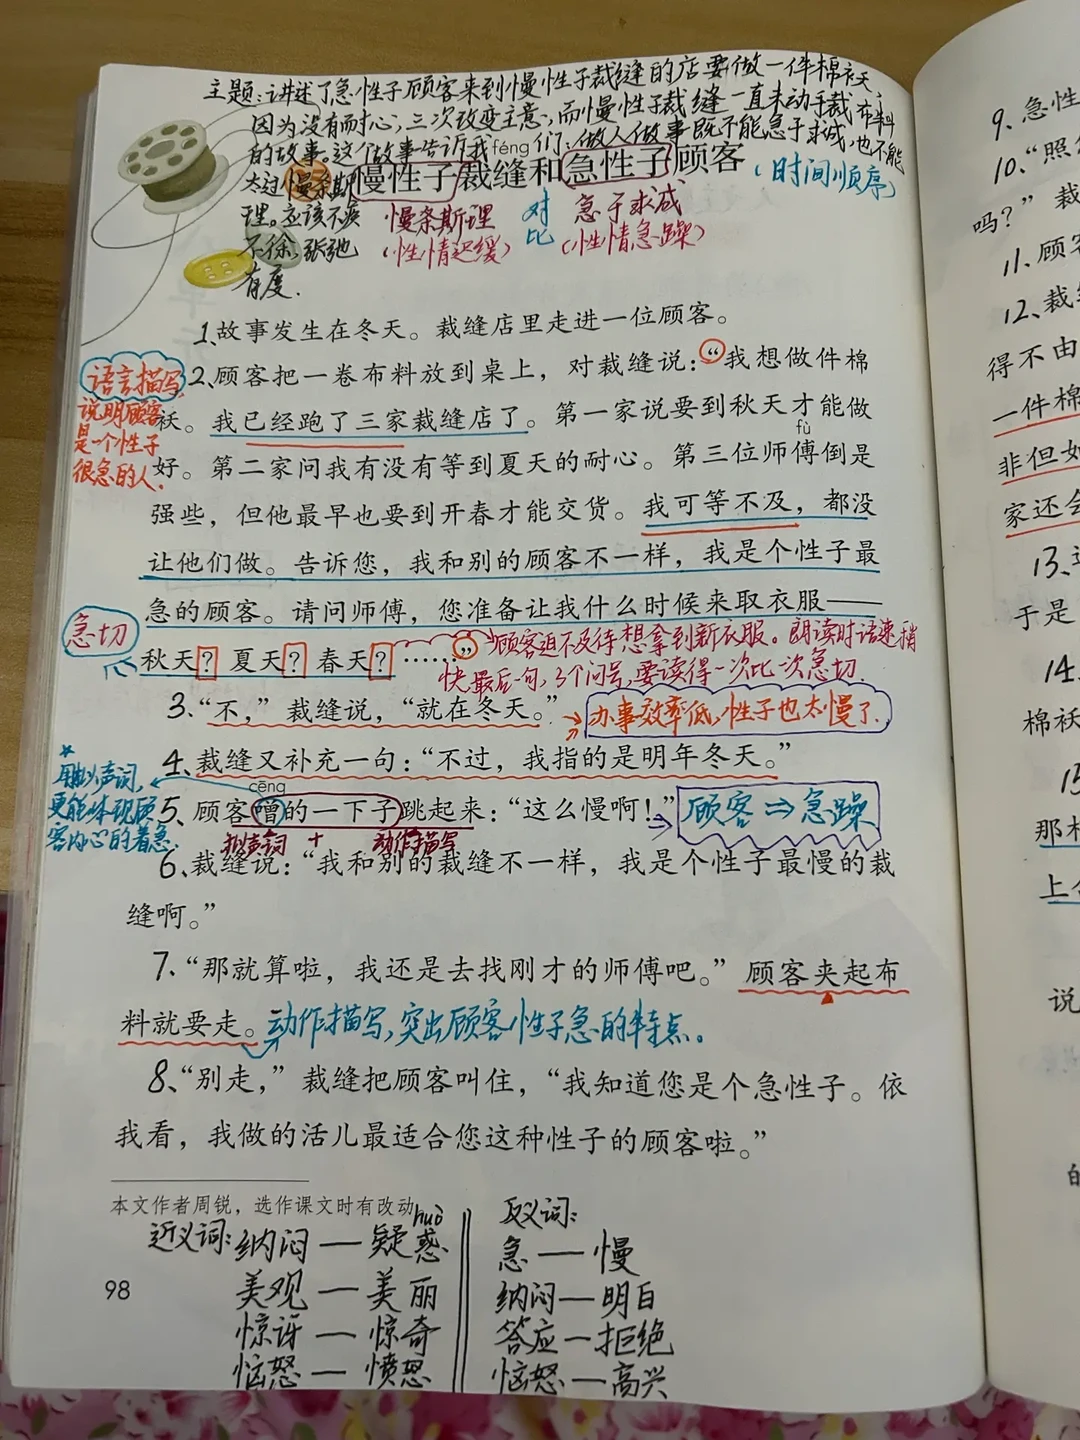 主题:讲述了急性子顾客来到慢性子裁缝的店要做一件棉袄,
因为没有耐心,三次改变主意,而慢性子裁缝一直未动手裁布料
的故事。这个故事告诉我们:做人做事既不能急于求诚,也不能
太过慢条斯
理。应该不疾
不徐,张弛
有度.
féng
慢性子裁缝和急性子顾客
(时间顺序)
慢条斯理 对比 急于求成
(性情迟缓) (性情急躁)
1、故事发生在冬天。裁缝店里走进一位顾客。
语言描写
说明顾客
是一个性子
很急的人.
2、顾客把一卷布料放到桌上,对裁缝说:“我想做件棉
袄。我已经跑了三家裁缝店了。第一家说要到秋天才能做
fù
好。第二家问我有没有等到夏天的耐心。第三位师傅倒是
强些,但他最早也要到开春才能交货。我可等不及,都没
让他们做。告诉您,我和别的顾客不一样,我是个性子最
急的顾客。请问师傅,您准备让我什么时候来取衣服——
急切
秋天?夏天?春天?……”
顾客迫不及待想拿到新衣服。朗读时语速稍
快最后一句,3个问号,要读得一次比一次急切.
3、“不,”裁缝说,“就在冬天。”
办事效率低,性子也太慢了.
4、裁缝又补充一句:“不过,我指的是明年冬天。”
用拟声词,
更能体现顾
客内心的着急.
cēng
5、顾客噌的一下子跳起来:“这么慢啊!”
顾客⇒急躁
拟声词 + 动作描写
6、裁缝说:“我和别的裁缝不一样,我是个性子最慢的裁
缝啊。”
7、“那就算啦,我还是去找刚才的师傅吧。”顾客夹起布
料就要走。
动作描写,突出顾客性子急的特点。
8、“别走,”裁缝把顾客叫住,“我知道您是个急性子。依
我看,我做的活儿最适合您这种性子的顾客啦。”
本文作者周锐,选作课文时有改动。
近义词:纳闷—疑惑
huò
美观—美丽
惊讶—惊奇
恼怒—愤怒
反义词:
急—慢
纳闷—明白
答应—拒绝
恼怒—高兴
98
9、急性
10、“照
吗?”裁
11、顾客
12、裁
得不由
一件棉
非但如
家还会
13、
于是
14、
棉袄
15
那村
上
说
的